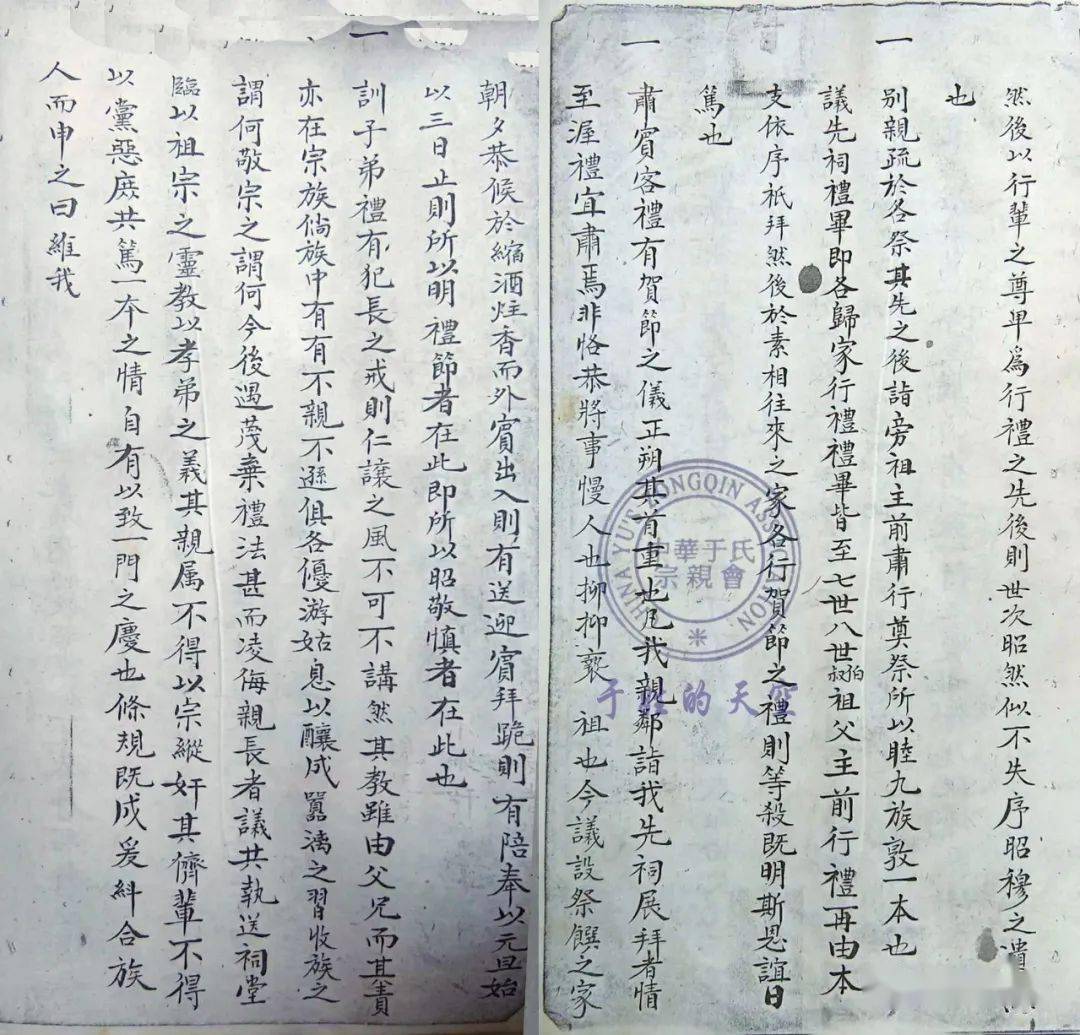 然後以行輩之尊卑為行禮之先後則世次昭然似不失序昭穆之遺
也
一
別親疏於各祭其先之後詣旁祖主前肅行奠祭所以睦九族敦一本也
議先祠禮畢即各歸家行禮禮畢皆至七世八世伯叔祖父主前行禮再由本
支依序祇拜然後於素相往來之家各行賀節之禮則等殺既明斯恩誼日
篤也
一
肅賓客禮有賀節之儀正朔其首重也凡我親鄰詣我先祠展拜者情
至渥禮宜肅焉非恪恭將事慢人也抑抑褻 祖也今議設祭饌之家
朝夕恭候於縮酒炷香而外賓出入則有送迎賓拜跪則有陪奉以元旦始
以三日止則所以明禮節者在此即所以昭敬慎者在此也
一
訓子弟禮有犯長之戒則仁讓之風不可不講然其教雖由父兄而其責
亦在宗族倘族中有有不親不遜俱各優游姑息以釀成嚚漓之習收族之
謂何敬宗之謂何今後遇茂棄禮法甚而凌侮親長者議共執送祠堂
臨以祖宗之靈教以孝弟之義其親属不得以宗縱奸其儕輩不得
以黨惡庶共篤一本之情自有以致一門之慶也條規既成爰糾合族
人而申之曰維我
CHINA YU'S ZONGQIN ASSOCIATION
中華于氏
宗親會
的天空